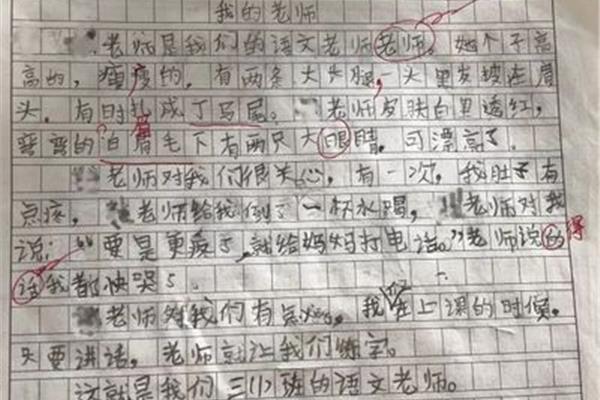 我的老师
老师是我们的语文老师老师。她个子高
高的，瘦瘦的，有两条大长腿，头黑发披在眉
头。有时扎成丁马尾。老师皮肤白里透红，
弯弯的白眉毛下有两只大眼睛，可漂亮了。
老师对我们很关心，有一次，我肚子有
点疼，老师给我倒了一杯水喝，老师对我
说："要是更疼了，就给妈妈打电话。"老师说的 得
话我都快哭了。
老师对我们有点xiōng，我们在上课的时候。
只要讲话，老师就让我们练字。
这就是我们三(1)班的语文老师。